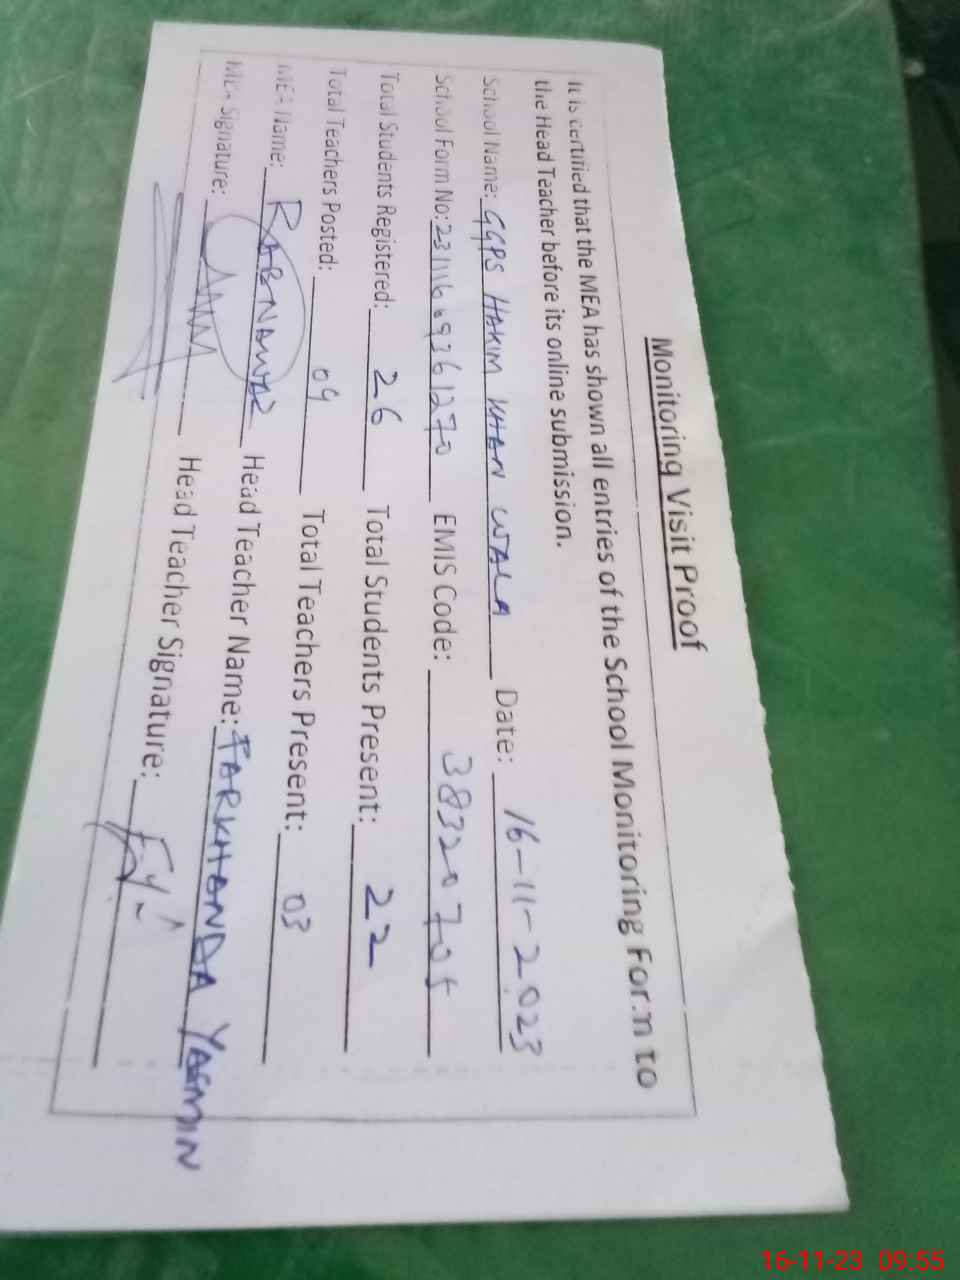 Monitoring Visit Proof
It is certified that the MEA has shown all entries of the School Monitoring Form to
the Head Teacher before its online submission.
School Name: GGPS HAKIM KHAN WALA Date: 16-11-2023
School Form No: EMIS Code: 38320705
Total Students Registered: 26 Total Students Present: 22
Total Teachers Posted: 09 Total Teachers Present: 03
MEA Name: RABNAWAZ Head Teacher Name: FARKHANDA YASMIN
MEA Signature: Head Teacher Signature:
16-11-23 09:55